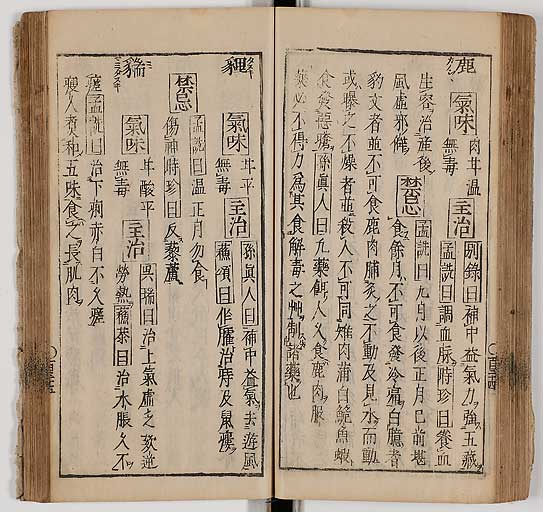 鹿
氣味 肉甘温
無毒 主治 別錄曰補中益氣力強五藏
孟詵曰調血脉時珍曰養血
生容治産後
風虛邪僻 禁忌 孟詵曰九月以後正月已前堪
食餘月不可食發冷痛白臆者
豹文者並不可食鹿肉脯炙之不動及見水而動
或曝之不燥者並殺人不可同雉肉蒲白鮠魚蝦
食發惡瘡孫眞人曰凡藥餌人久食鹿肉服
藥必不得力爲其食解毒之艸制諸藥也
貍
氣味 甘平
無毒 主治 孫眞人曰補中益氣去遊風
蘇頌曰作臛治痔及鼠瘻
禁忌 孟詵曰温正月勿食
傷神時珍曰反藜蘆
貒
氣味 甘酸平
無毒 主治 呉瑞曰治上氣虛乏欬逆
勞熱蘇恭曰治水脹久不
瘥孟詵曰治下痢赤白不久瘥
瘦人煮和五味食之長肌肉